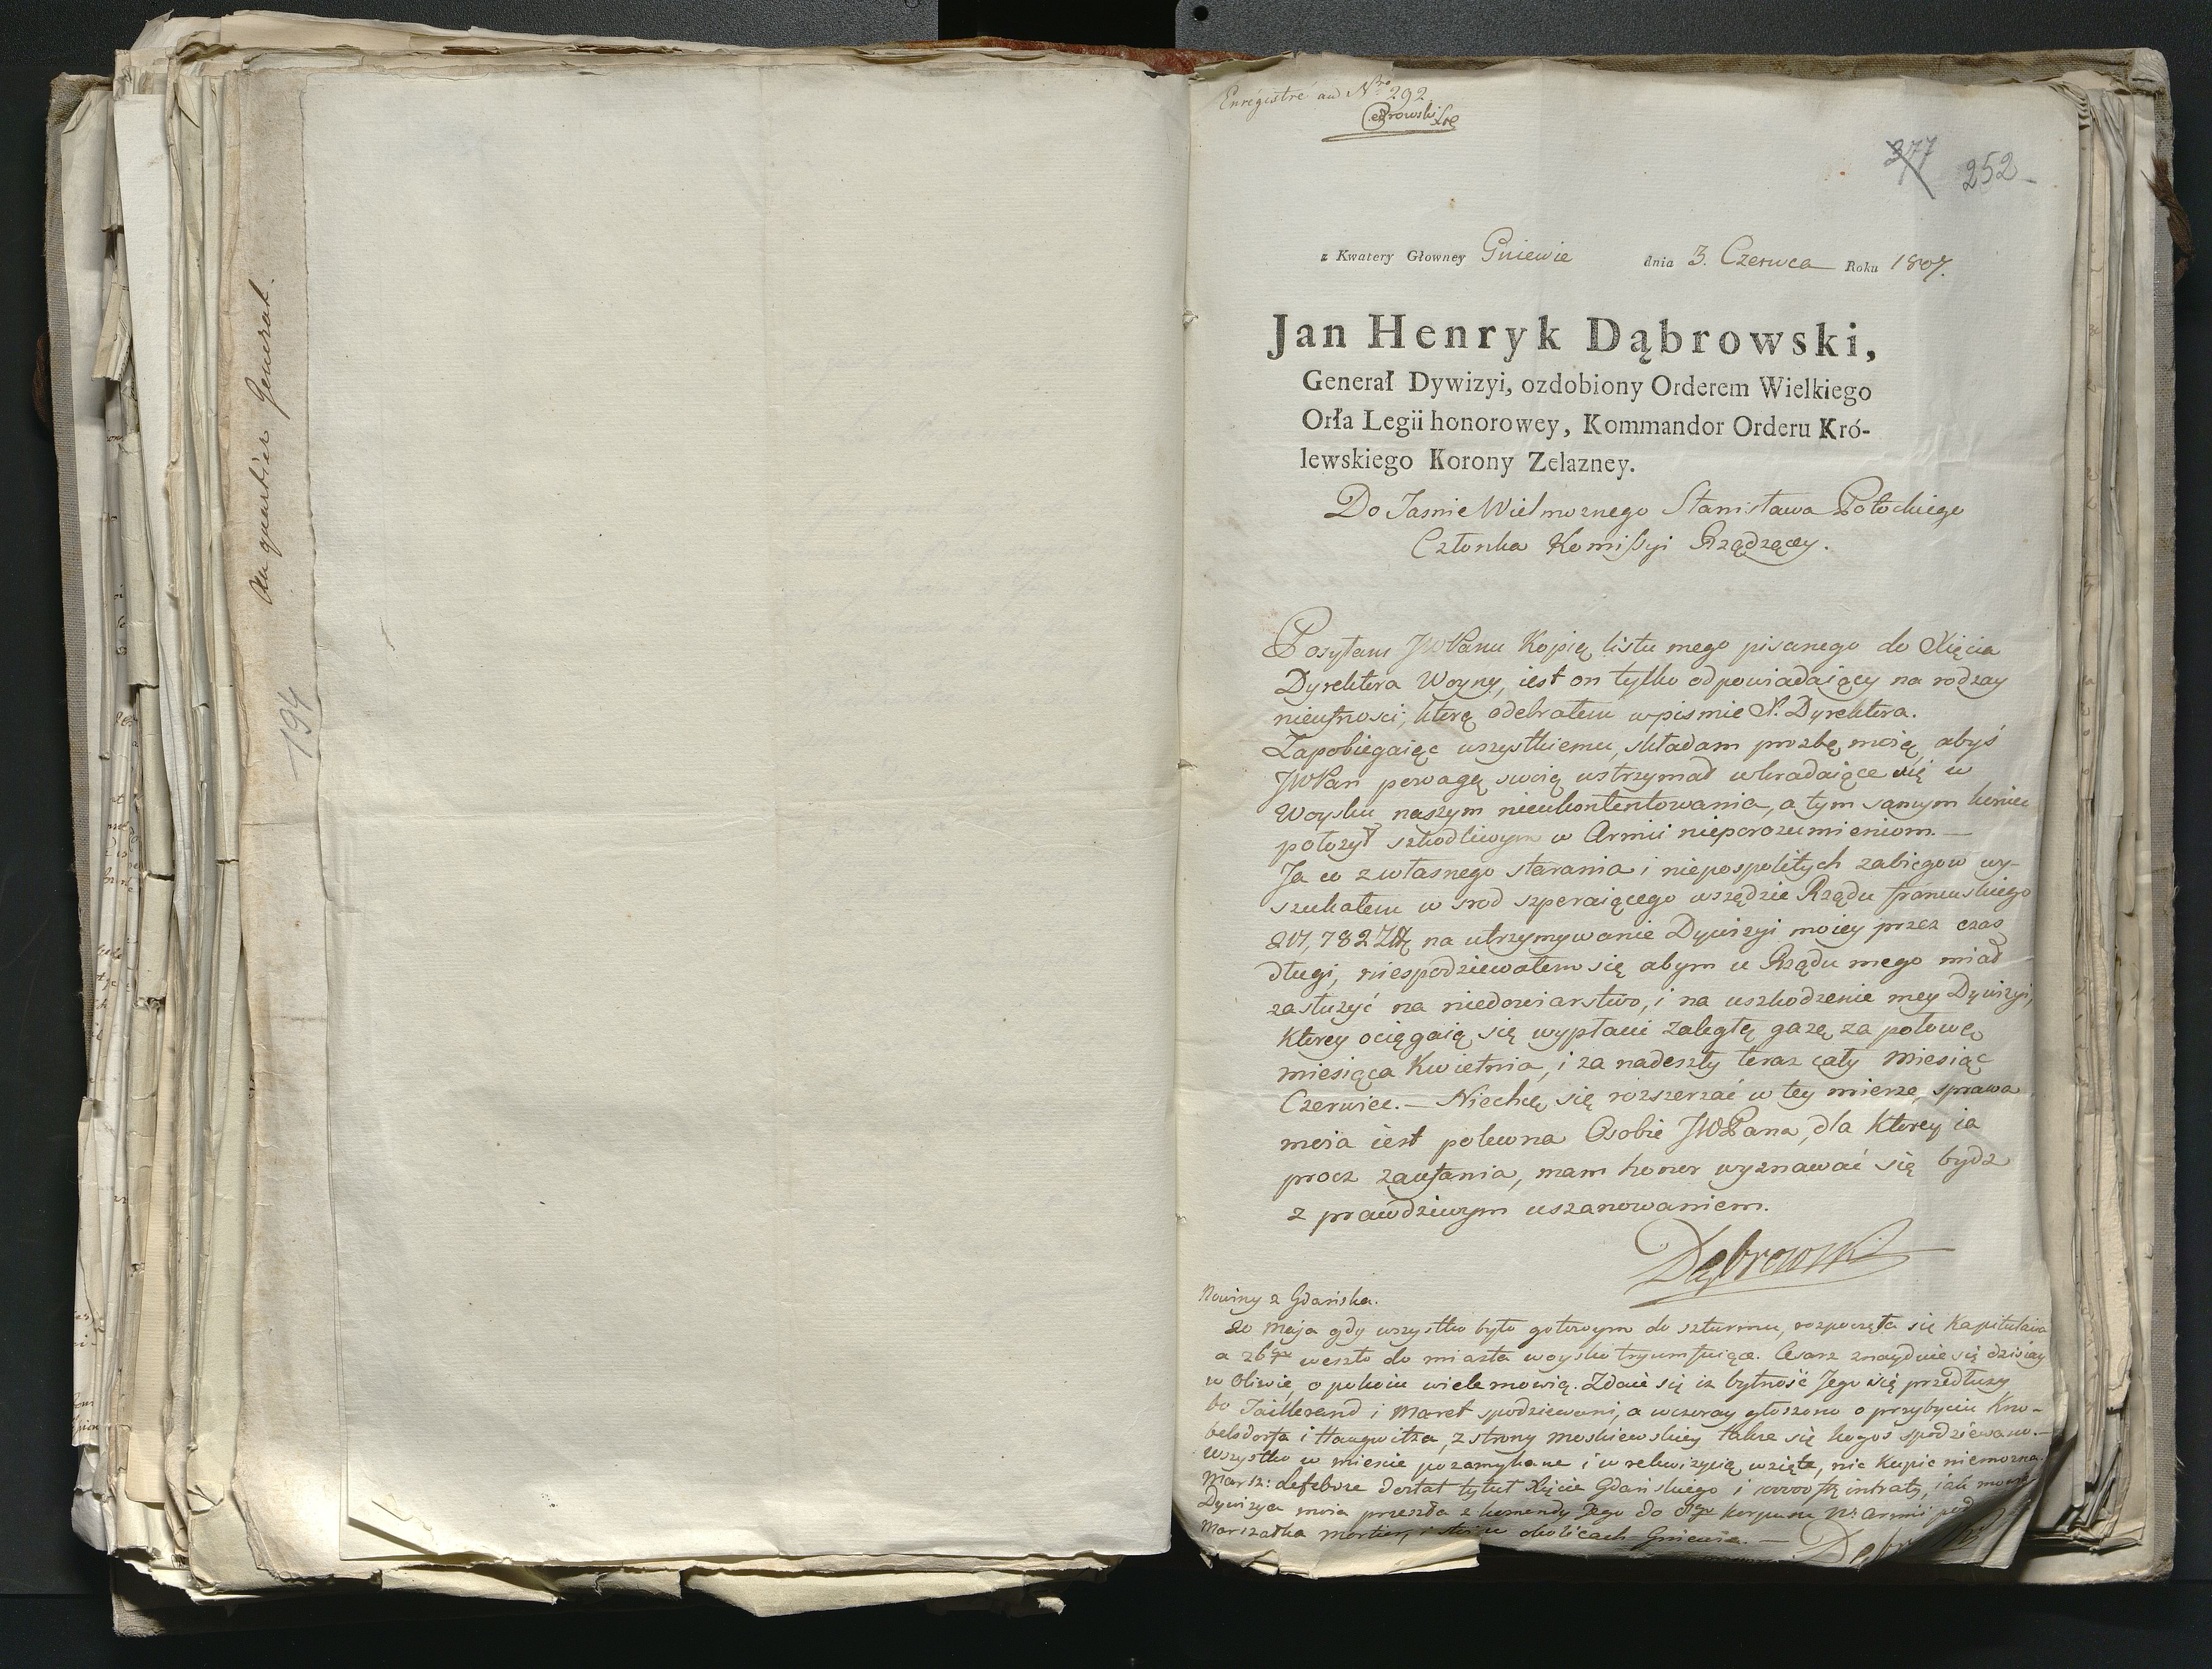 Au quartier General.
194
Enrégistré au Nro 292
377 252
z Kwatery Głowney Gniewie dnia 3. Czerwca Roku 1807.
Jan Henryk Dąbrowski,
Generał Dywizyi, ozdobiony Orderem Wielkiego
Orła Legii honorowey, Kommandor Orderu Kró-
lewskiego Korony Zelazney.
Do Jasnie Wielmoznego Stanisława Potockiego
Członka Komissyi Rządzącey.
Posyłam JWPanu Kopią listu mego pisanego do Xięcia
Dyrektora Woyny, iest on tylko odpowiadaiący na rodzay
nieufnosci, którą odebrałem w pismie X. Dyrektora.
Zapobiegaiąc wszystkiemu, składam prozbę moią abyś
JWPan powagą swoią wstrzymał wkradaiące się w
Woysku naszym nieukontentowania, a tym samym koniec
położył szkodliwym w Armii nieporozumieniom. —
Ja co z własnego starania i niepospolitych zabiegow wy-
szukałem w srod szperaiącego wszędzie Rządu francuskiego
217,782 Zł na utrzymywanie Dywizyi moiey przez czas
długi, niespodziewałem się abym u Rządu mego miał
zasłużyć na niedowiarstwo, i na uszkodzenie mey Dywizyi,
Ktorey ociągaią się wypłacić zaległą gazę za połowę
miesiąca Kwietnia, i za nadeszły teraz cały miesiąc
Czerwiec. — Niechcę się rozszerzać w tey mierze, sprawa
moia iest polewna Osobie JWPana, dla Ktorey ia
procz zaufania, mam honor wyznawać się bydz
z prawdziwym uszanowaniem.
Dąbrowski
Nowiny z Gdańska.
20 Maja gdy wszystko było gotowym do szturmu, rozpoczęła się Kapitulacia
a 26go weszło do miasta woysko tryumfuiące. Cesarz znayduie się dzisiay
w Oliwie, o pokoiu wiele mowią. Zdaie się iz bytność Jego się przedłuży
bo Taillerand i Maret spodziewani, a wczoray głoszono o przybyciu Kno-
belsdorfa i Haugwitza, z strony moskiewskiey takze się kogoś spodziewano. —
Wszystko w mieście pozamykane i w rekwizycią wzięte, nic kupic niemozna.
Marsz: Lefebvre dostał tytuł Xięcia Gdańskiego i 100000 intraty, iak mowią
Dywizya moia przeszła z komendy Jego do 8go korpusu W. armii pod
Marszałka Mortier, i stoi w okolicach Gniewa. —